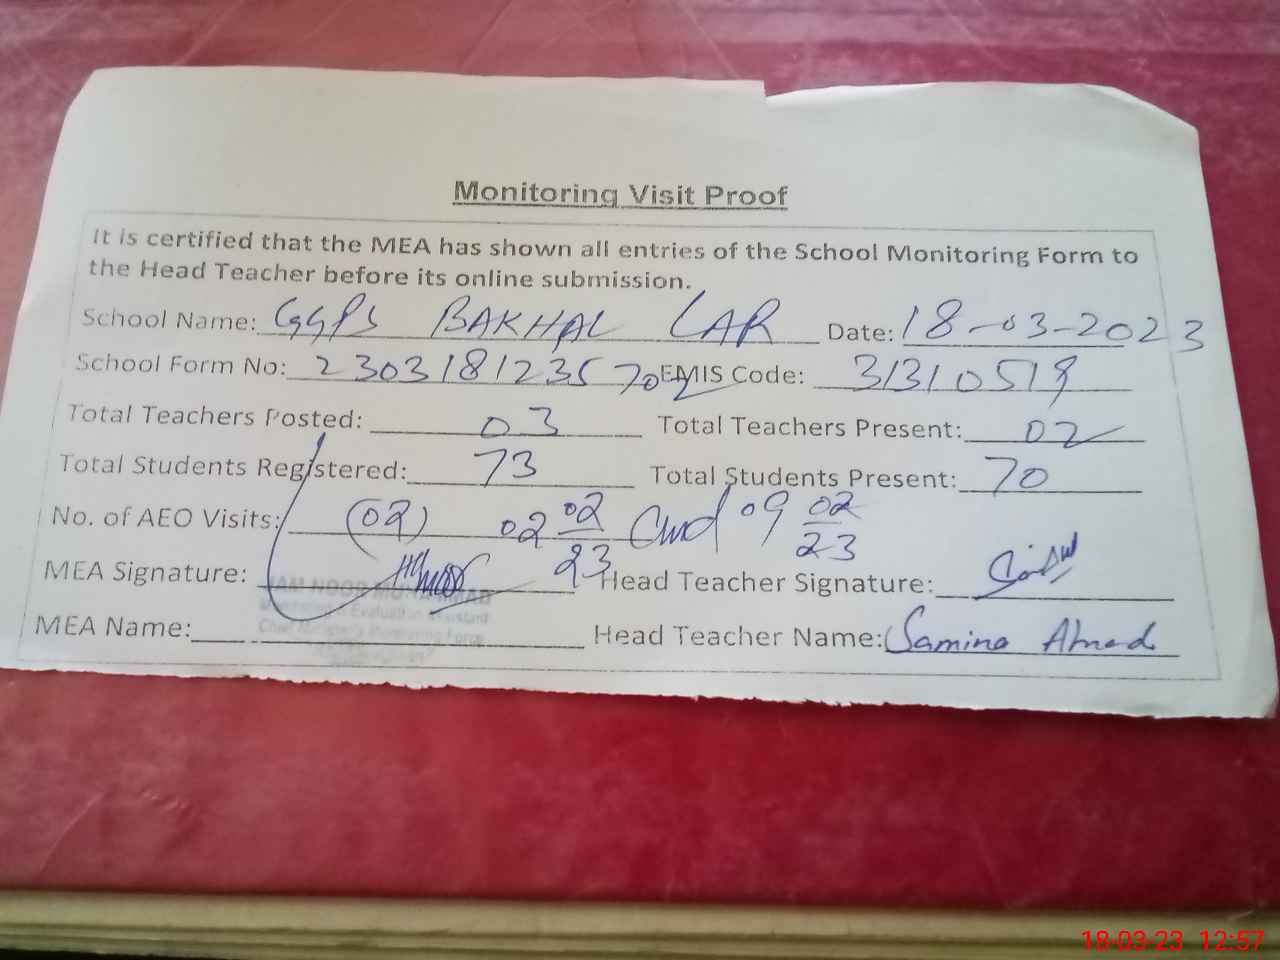 Monitoring Visit Proof
It is certified that the MEA has shown all entries of the School Monitoring Form to
the Head Teacher before its online submission.
School Name: GGPS BAKHAL LAR Date: 18-03-2023
School Form No: 230318123570 EMIS Code: 31310519
Total Teachers Posted: 03 Total Teachers Present: 02
Total Students Registered: 73 Total Students Present: 70
No. of AEO Visits: (02) 02 02/23 and 09 02/23
MEA Signature: Head Teacher Signature:
JAM NOOR MUHAMMAD
Monitoring & Evaluation Assistant
MEA Name: Head Teacher Name: Samina Ahmad
Chief Minister's Monitoring Force
18-03-23 12:57